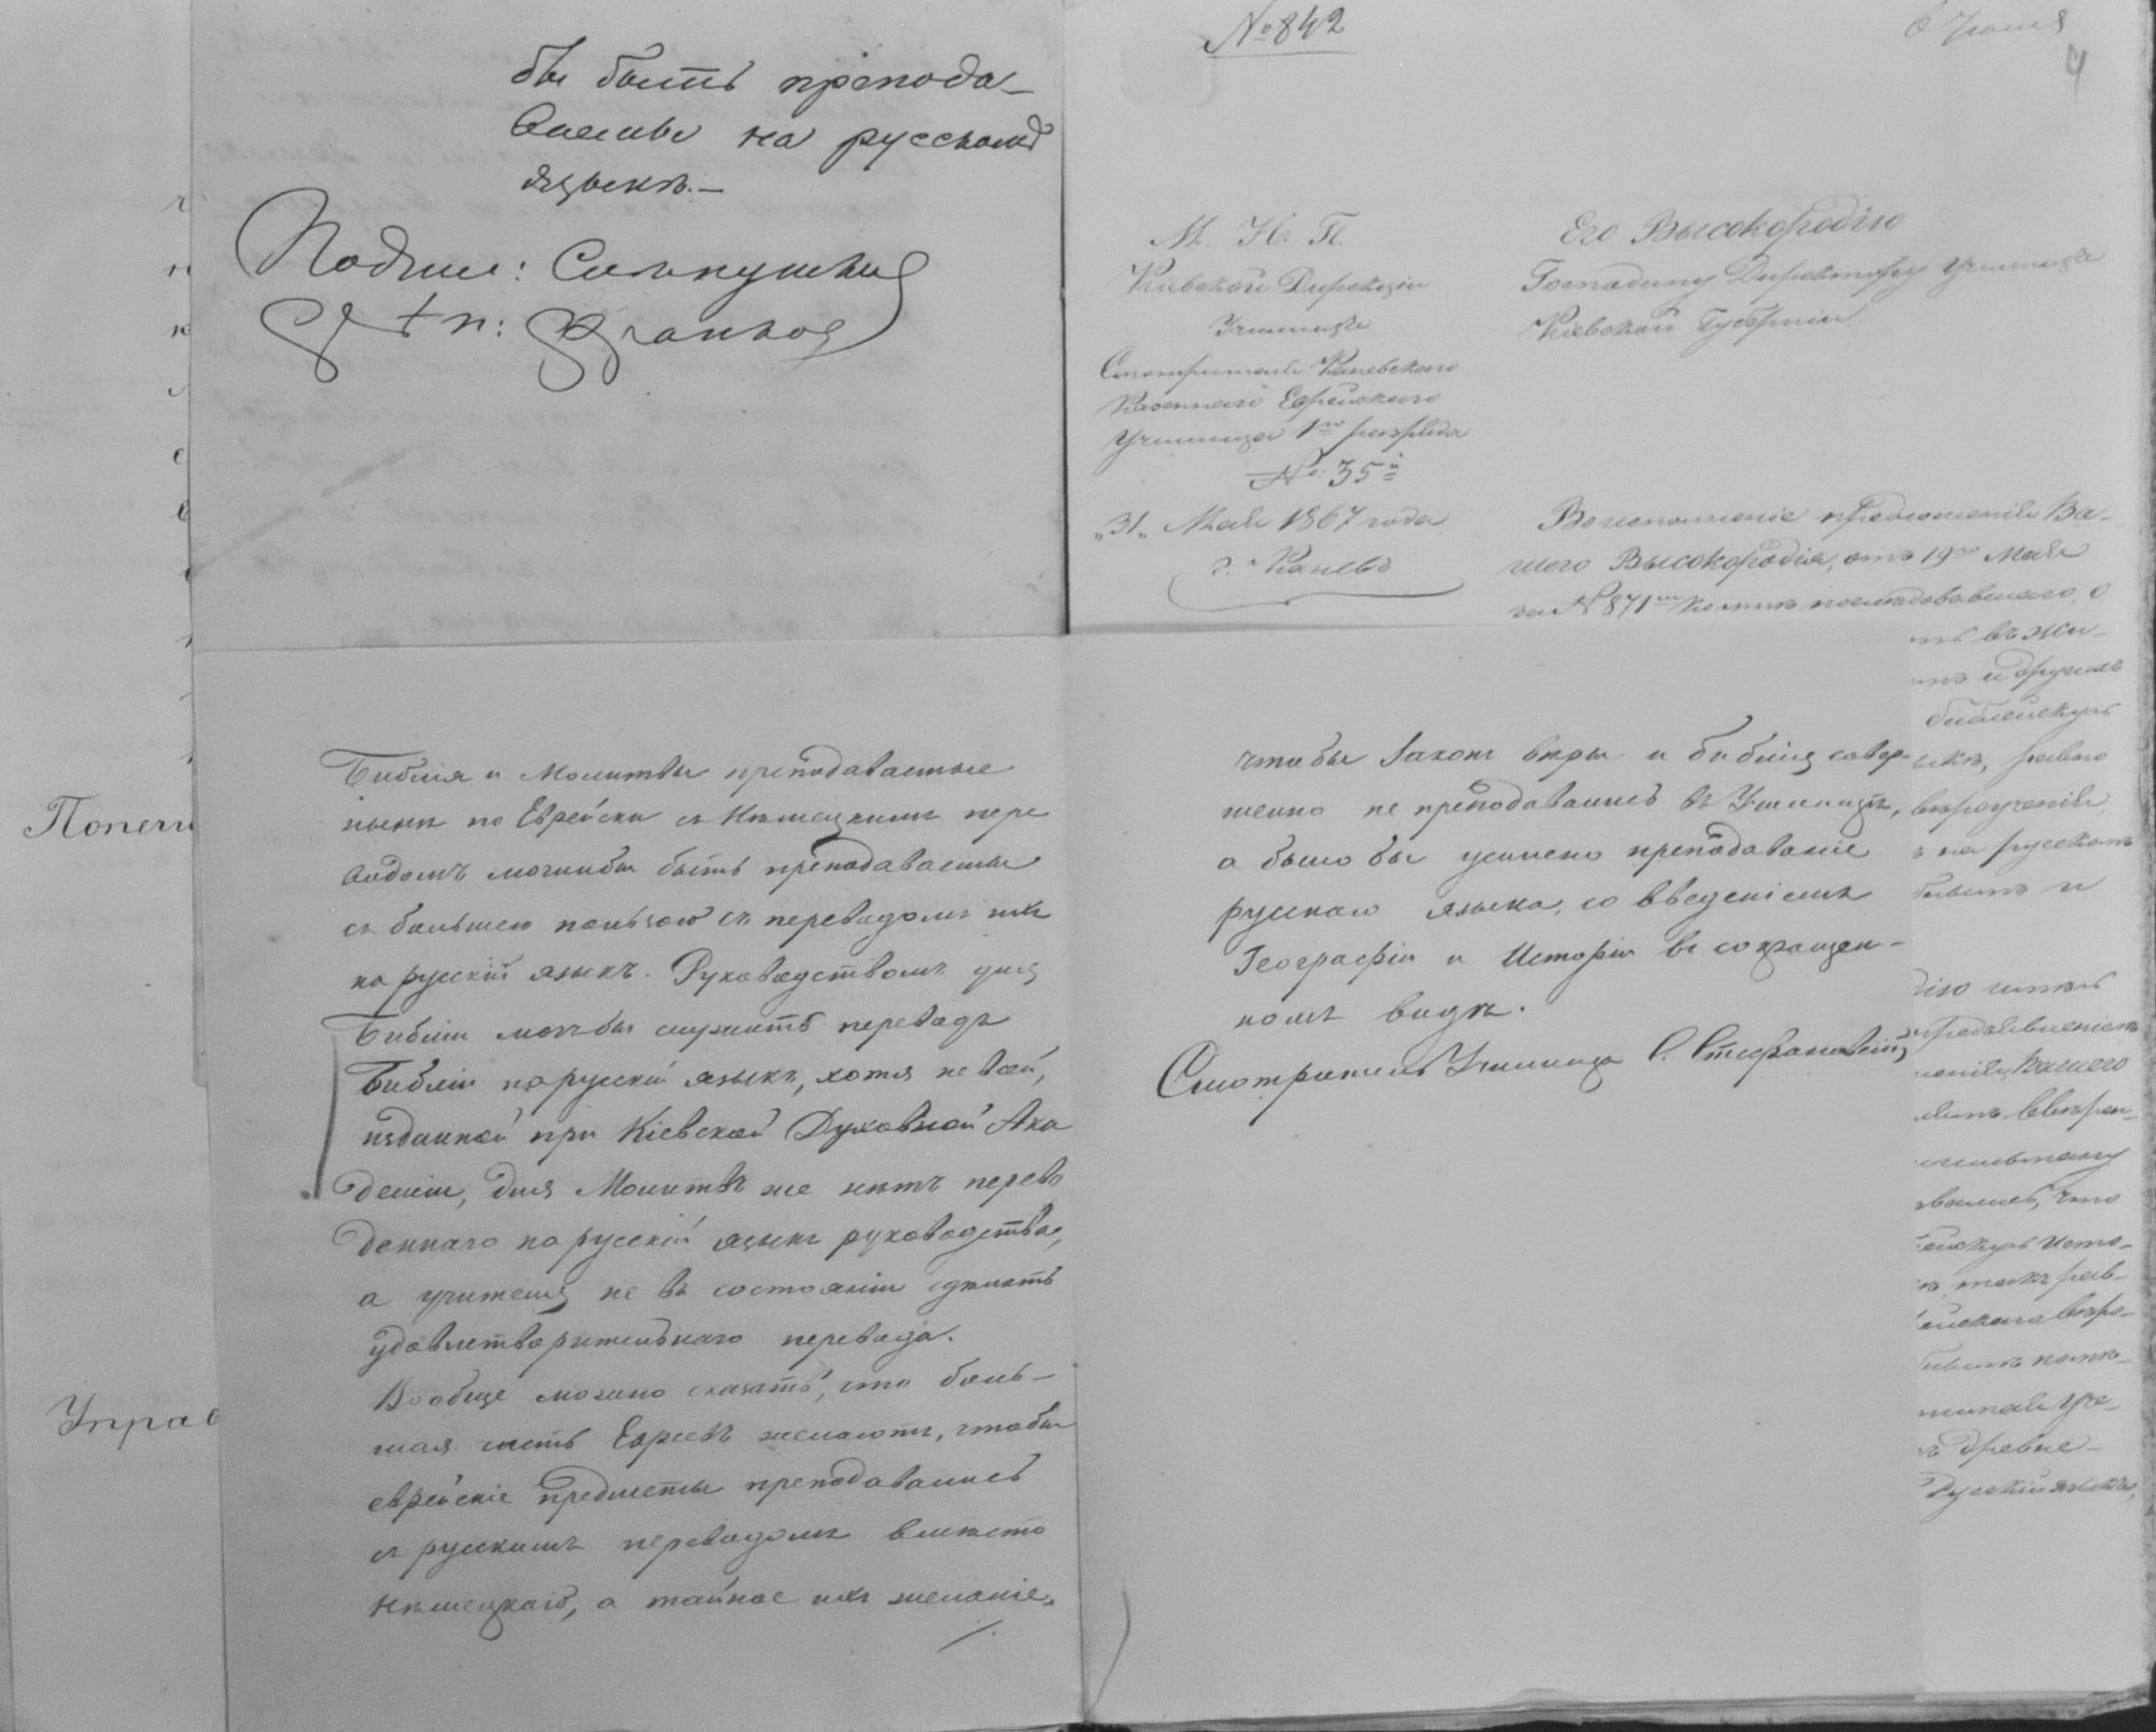 бы быть препода-
ваемы на русскомъ
языкѣ.—
№ 842
6 Іюня
4
М. Н. П.
Кіевской Дирекціи
Училищъ
Смотрителя Каневскаго
Казеннаго Еврейскаго
Училища 1го разряда
№ 35й
„31„ Мая 1867 года
г. Каневъ
Его Высокородію
Господину Директору Училищъ
Кіевской Губерніи
Во исполненіе предложенія Ва-
шего Высокородія, отъ 19го Мая
за № 871м послѣдовавшаго, о
Попечи
Управ
Библія и Молитвы преподаваемые
нынѣ по Еврейски съ Нѣмецкимъ пере
водомъ могли бы быть преподаваемы
съ большею пользою съ переводомъ ихъ
на русскій языкъ. Руководствомъ для
Библіи могъ бы служить переводъ
Библіи на русскій языкъ, хотя не всей,
изданной при Кіевской Духовной Ака
деміи, для Молитвъ же нѣтъ перево
деннаго на русскій языкъ руководства,
а учителя не въ состояніи сдѣлать
удовлетворительнаго перевода.
Вообще можно сказать, что боль-
шая часть Евреевъ желаютъ, чтобы
еврейскіе предметы преподавались
съ русскимъ переводомъ вмѣсто
Нѣмецкаго, а тайное ихъ желаніе,
/.
чтобы Законъ вѣры и библія совер-
шенно не преподавались въ Училищѣ,
а было бы усилено преподаваніе
русскаго языка, со введеніемъ
Географіи и Исторіи въ сокращен-
номъ видѣ.
Смотритель Училища С. Стефановскій
въ жи-
и другихъ
библейскую
равно
вѣроученія
на русскомъ
и
Вашего
что
исто-
такъ рав-
вѣро-
древне-
Русскій языкъ,